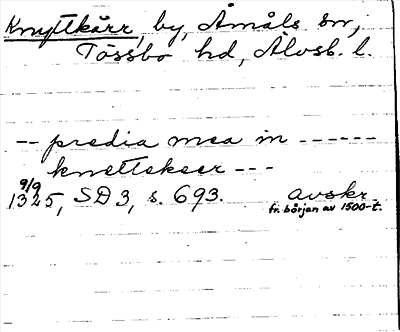 Knyttkärr, by, Åmåls sn,
Tössbo hd, Älvsb. l.
-- predia mea in ------
knettekeer ---
9/9
1325, SD 3, s. 693. avskr.
fr. början av 1500-t.